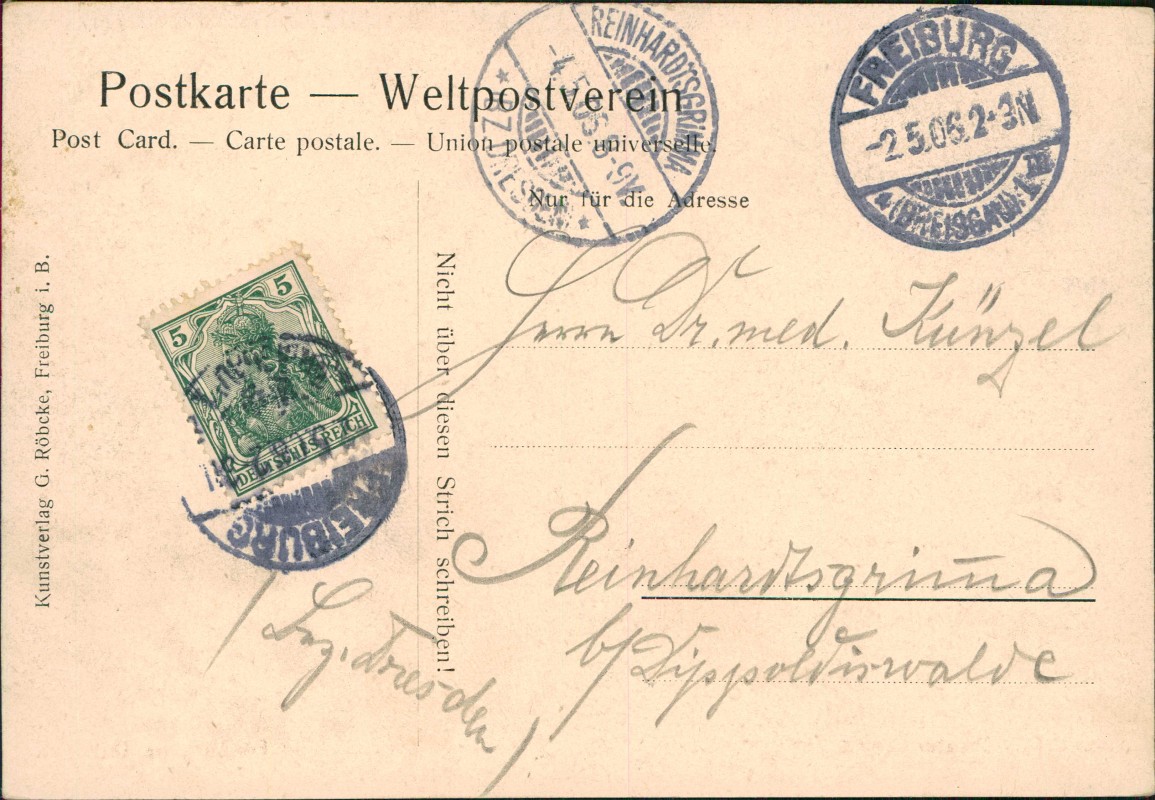 Postkarte — Weltpostverein
Post Card. — Carte postale. — Union postale universelle.
Nur für die Adresse
REINHARDTSGRIMMA
-4.5.06.8-9V.
* BZ. DRESDEN *
FREIBURG
-2.5.06.2-3N
*(BREISGAU)1
Kunstverlag G. Röbcke, Freiburg i. B.
5
5
DEUTSCHES REICH
FREIBURG
Nicht über diesen Strich schreiben!
Herrn Dr. med. Künzel
Reinhardtsgrimma
b/ Dippoldiswalde
/ Bez. Dresden /